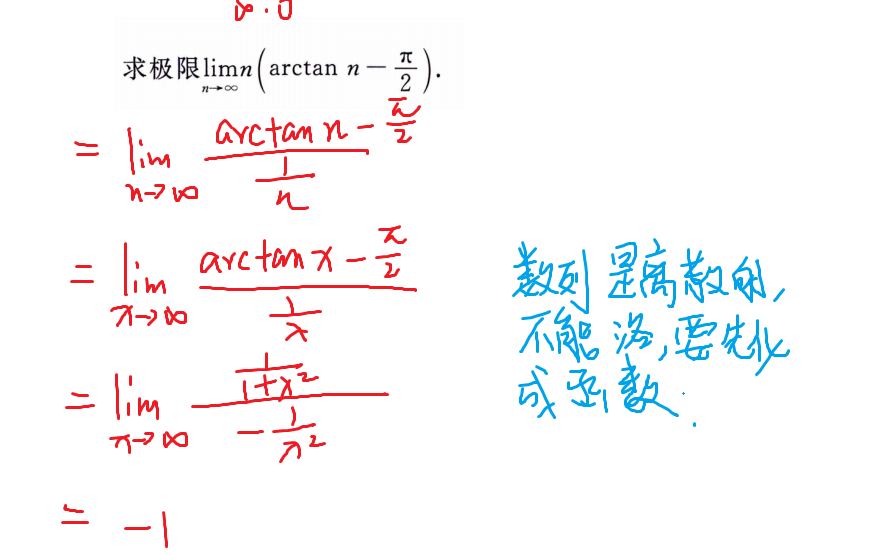 ∞·0
求极限lim n→∞ n(arctan n − π/2).
= lim n→∞ (arctan n − π/2)/(1/n)
= lim x→∞ (arctan x − π/2)/(1/x)
= lim x→∞ (1/(1+x²))/(−1/x²)
= −1
数列是离散的,
不能洛,要先化
成函数.